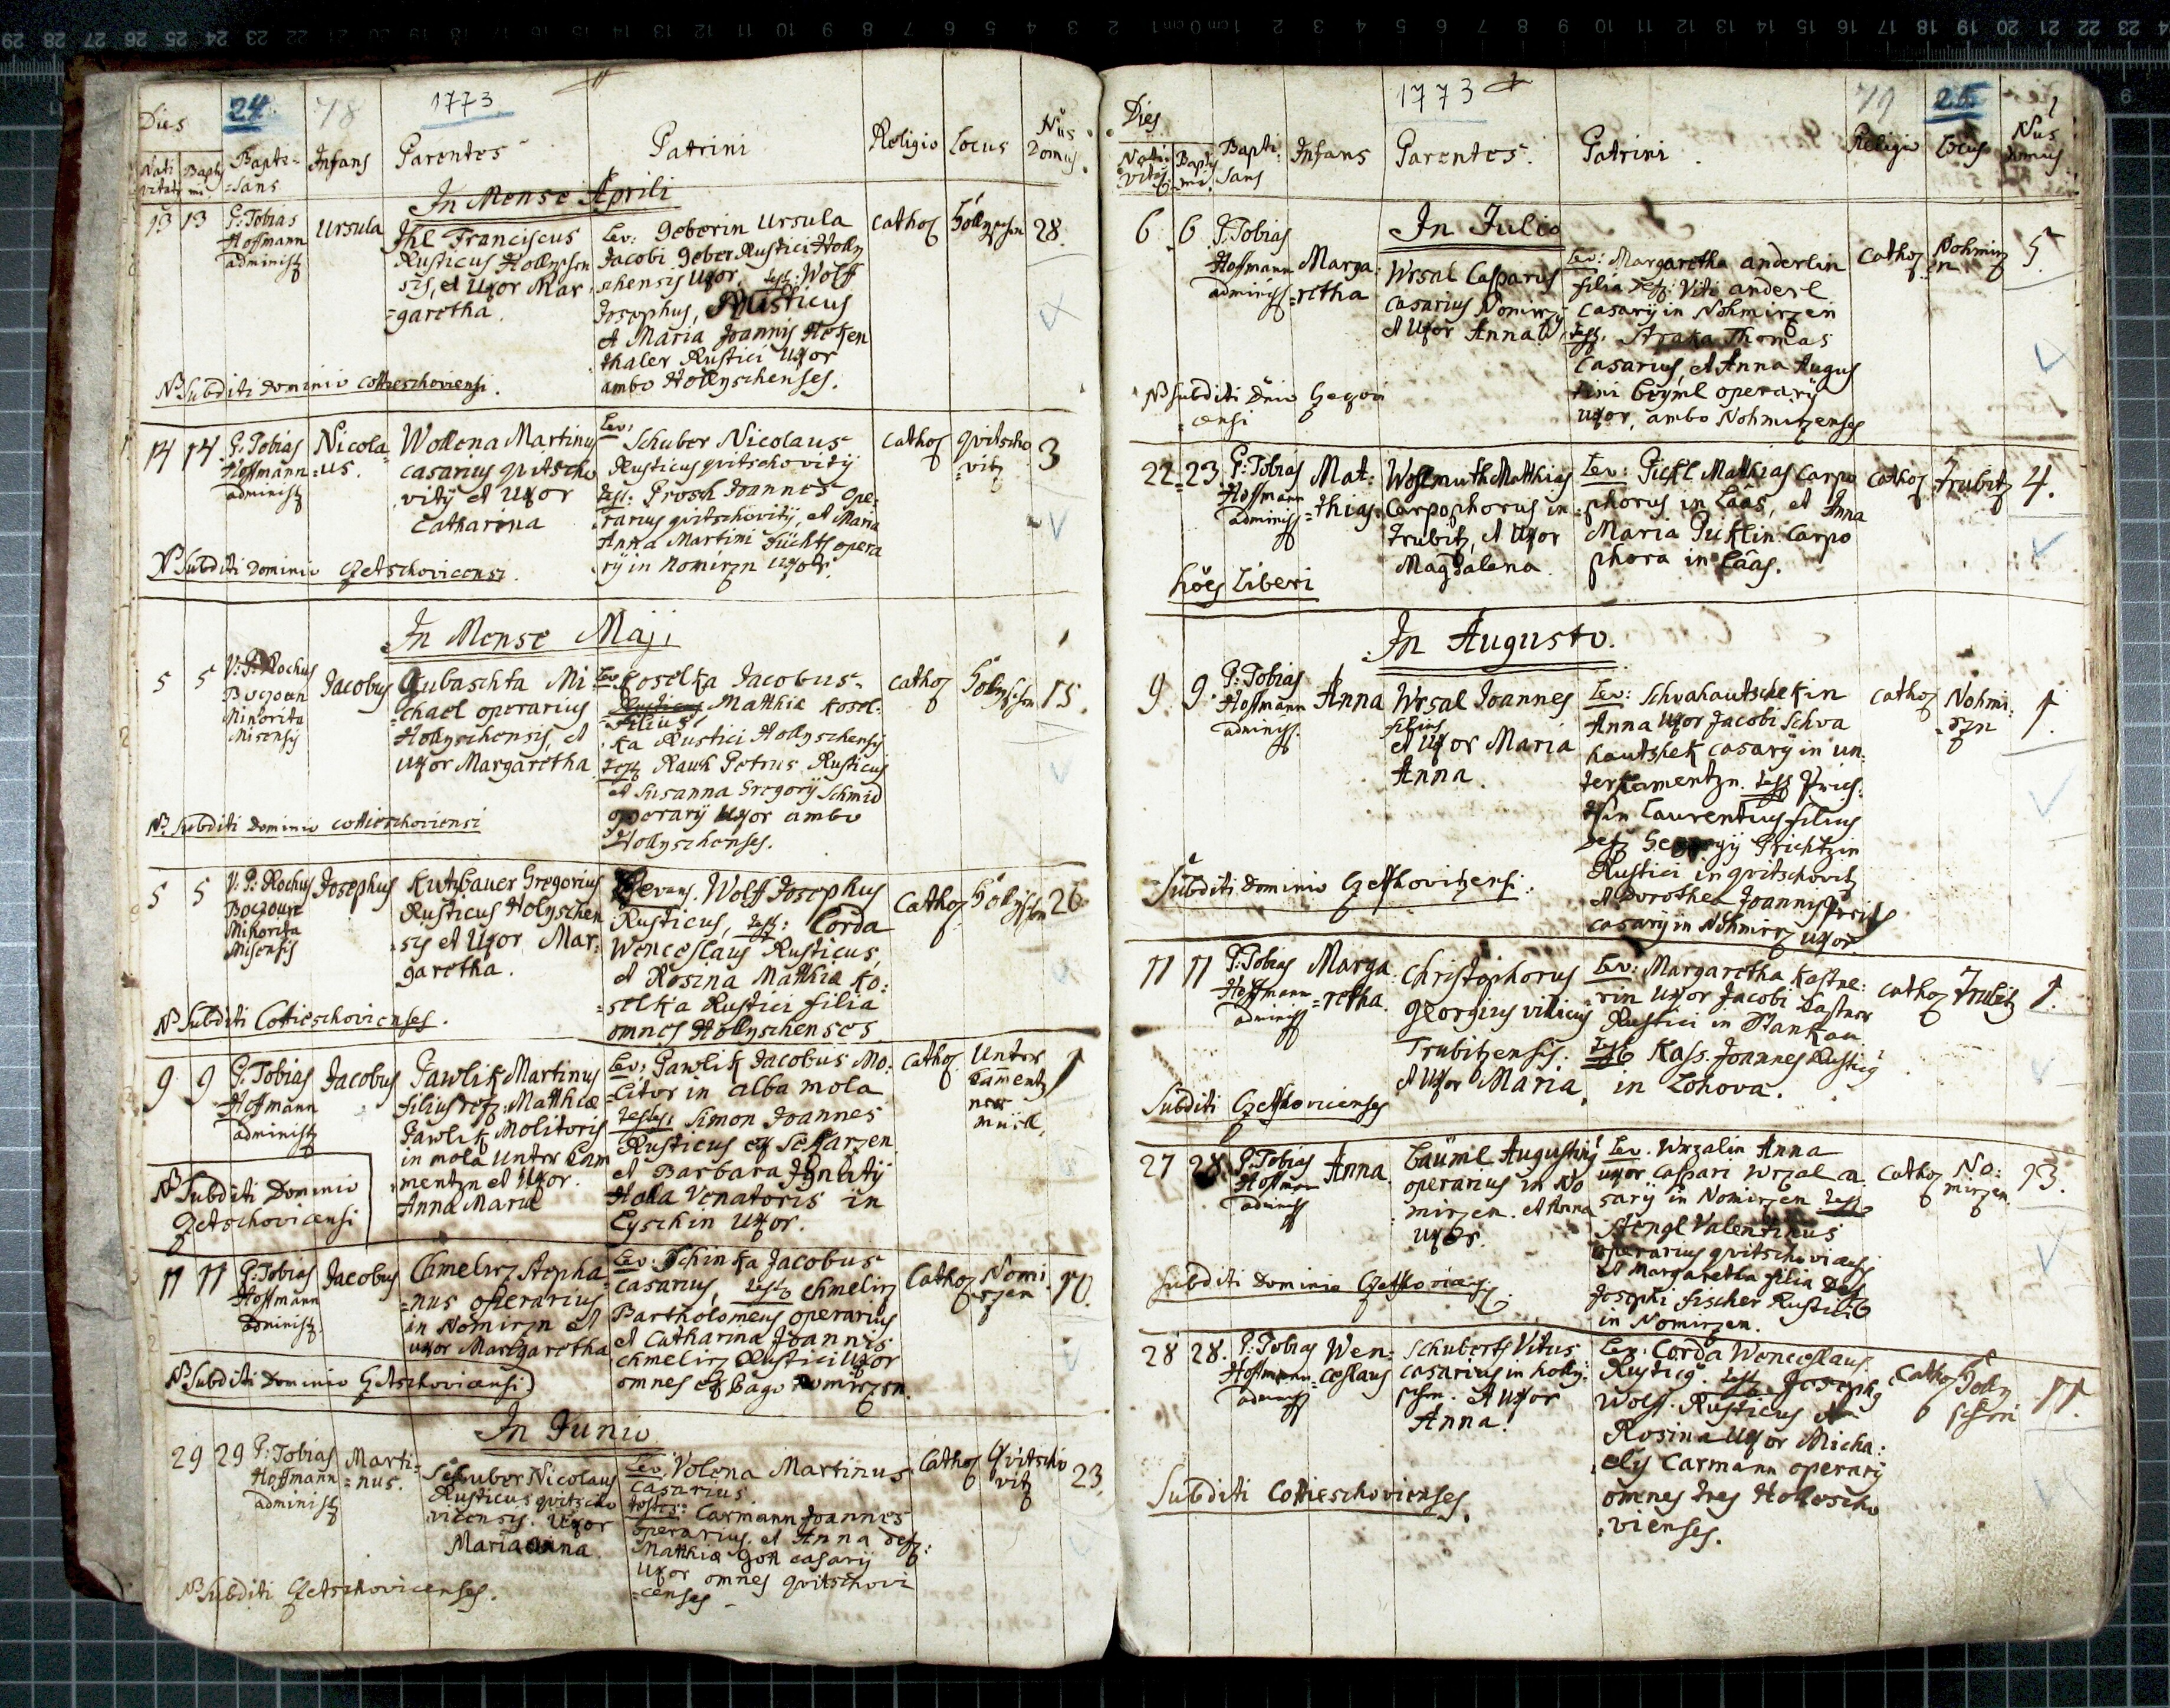 24. 78 1773
Dies
Nati vitatis Baptis mi Bapti= =sans Infans Parentes Patrini Religio Locus Nus Domus
In Mense Aprili
13 13 P: Tobias Hoffmann administ Ursula
Ihl Franciscus
Rusticus Hollyschen
sis, et Uxor Mar
=garetha.
Lev: Geberin Ursula
Jacobi Geber Rustici Holly
schensis Uxor, test: Wolff
Josephus, Rusticus
et Maria Joannis Hoken
thaler Rustici Uxor
ambo Hollyschenses.
Cathol Hollyschen 28.
NB Subditi Dominio Cottieschoviensi.
14 14 P: Tobias Hoffmann administ Nicola= =us.
Wollena Martinus
casarius qvitscho
vity et Uxor
Catharina
Lev:
Schuber Nicolaus
Rusticus qvitschovity
test: Prosch Joannes ope=
rarius qvitschovity, et Maria
Anna Martini Füchtl opera
ry in Nomirzn Uxor.
Cathol qvitscho =vitz 3
NB Subditi Dominio Czetschovicensi.
In Mense Maji
5 5 V: P: Rochus Boczoun Minorita Misensis Jacobus
Kubaschta Mi
=chael operarius
Hollyschensis, et
uxor Margaretha
Lev: Koselka Jacobus
filius Matthiæ Kosel=
ka Rustici Hollyschensis
test Rauch Petrus Rusticus
et Susanna Gregory Schmid
operary Uxor ambo
Hollyschenses.
Cathol Hollyschen 15.
NB Subditi Dominio cottieschoviensi
5 5 V: P: Rochus Boczoun Minorita Misensis Josephus
Kutzbauer Gregorius
Rusticus Holyschen
=sis et Uxor Mar=
garetha.
Levans. Wolff Josephus
Rusticus, test: Corda
Wenceslaus Rusticus,
et Rosina Matthiæ Ko=
=selka Rustici filia
omnes Hollyschenses
Cathol Hollyschen 26
NB Subditi Cottieschovienses.
9 9 P: Tobias Hoffmann administ Jacobus
Pawlik Martinus
filius Matthiæ
Pawlik Molitoris
in mola Unter Cam
mentzn et Uxor.
Anna Maria
Lev: Pawlik Jacobus Mo=
litor in alba mola
testes: Simon Joannes
Rusticus ex
et Barbara
Halla Venatoris in
Lyschin Uxor.
Cathol Unter Camentz ner Mühl, 1
NB Subditi Dominio
Czetschovicensi
11 11 P: Tobias Hoffmann administ Jacobus
Chmelirz Stepha=
=nus operarius
in Nomirzn et
uxor Margaretha
Lev: Schinka Jacobus
casarius, test Chmelirz
Bartholomeus operarius
et Catharina Joannis
chmelirz Rustici Uxor
omnes ex Pago Nomirzen.
Cathol Nomi rzen 10.
NB Subditi Dominio Czetschovicensi
In Junio
29 29 P: Tobias Hoffmann administ Marti= =nus.
Schuber Nicolaus
Rusticus qvitscho
vicensis. Uxor
Maria Anna.
Lev. Volena Martinus
casarius
testes: Carmann Joannes
operarius, et Anna
Matthiæ Gött casarij
Uxor omnes qvitschovi
=censes.
Cathol Qvitscho vitz 23
NB Subditi Czetschovicenses.
1773 79 25
Dies
Nati vitatis Baptis mi Bapti= sans Infans Parentes. Patrini. Religio Locus Nus Domus
In Julio
6 6 P: Tobias Hoffmann administ Marga= =retha
Wrsal Casparus
casarius Nomirzy
et Uxor Anna
Lev: Margaretha anderlin
filia Viti anderl
Casarij in Nohmirzen
test. Straka Thomas
Casarius, et Anna Augus
tini Beyml operarij
uxor, ambo Nohmirzenses
Cathol Nohmirz =n 5
NB Subditi Dnio
=censi
22= 23. P: Tobias Hoffmann administ Mat= =thias
Wohlmuth Matthias
Carpophorus in
Trubitz, et Uxor
Magdalena.
Lev: Pickl Matthias Carpo
phorus in Laas, et Anna
Maria Picklin Carpo
phora in Laas.
Cathol Trubitz 4.
Liberi
In Augusto.
9 9. P: Tobias Hoffmann administ. Anna
Wrsal Joannes
filius
et Uxor Maria
Anna.
Lev: Schvahautschekin
Anna Uxor Jacobi Schva
hautshek casarij in un=
terkamentzn. test
Laurentius filius
Georgij Prichtzin
Rustici in qvitschovitz
et Dorothea Joannis
casarij in Nohmirz uxor
Cathol Nohmi= =rzn 1.
Subditi Dominio Czetschovitzensi.
11 11 P: Tobias Hoffmann administ Marga =retha.
Christophorus
Georgius vilicus
Trubitzensis.
et Uxor Maria,
Lev: Margaretha Kastne=
rin Uxor Jacobi Kastner
Rustici in Stankau
test Kass. Joannes Rustic9
in Lohova.
Cathol Trubitz 1.
Subditi Czetschovicenses
27 28. P: Tobias Hoffman administ Anna.
Bäuml Augustin9
operarius in No
mirzen. et Anna
uxor.
Lev. Wrzalin Anna
uxor Caspari Wrzal a.
sarij in Nomirzen test
Stengl Valentinus
operarius qvitschovicensis
et Margaretha filia Def
Josephi Fischer Rustici
in Nomirzen.
Cathol No= mirzen. 13.
Subditi Dominio Czetschovicensi.
28 28. P: Tobias Hoffmann administ Wen= =ceslaus
Schuberth Vitus
casarius in holly=
schen. et Uxor
Anna.
Lev: Corda Wenceslaus
Rustic9. test Joseph9
Wolf. Rusticus
Rosina Uxor Micha=
elis Carmann operarij
omnes tres Hollescho
vienses.
Cathol Holly schen 11.
Subditi Cottieschovienses.